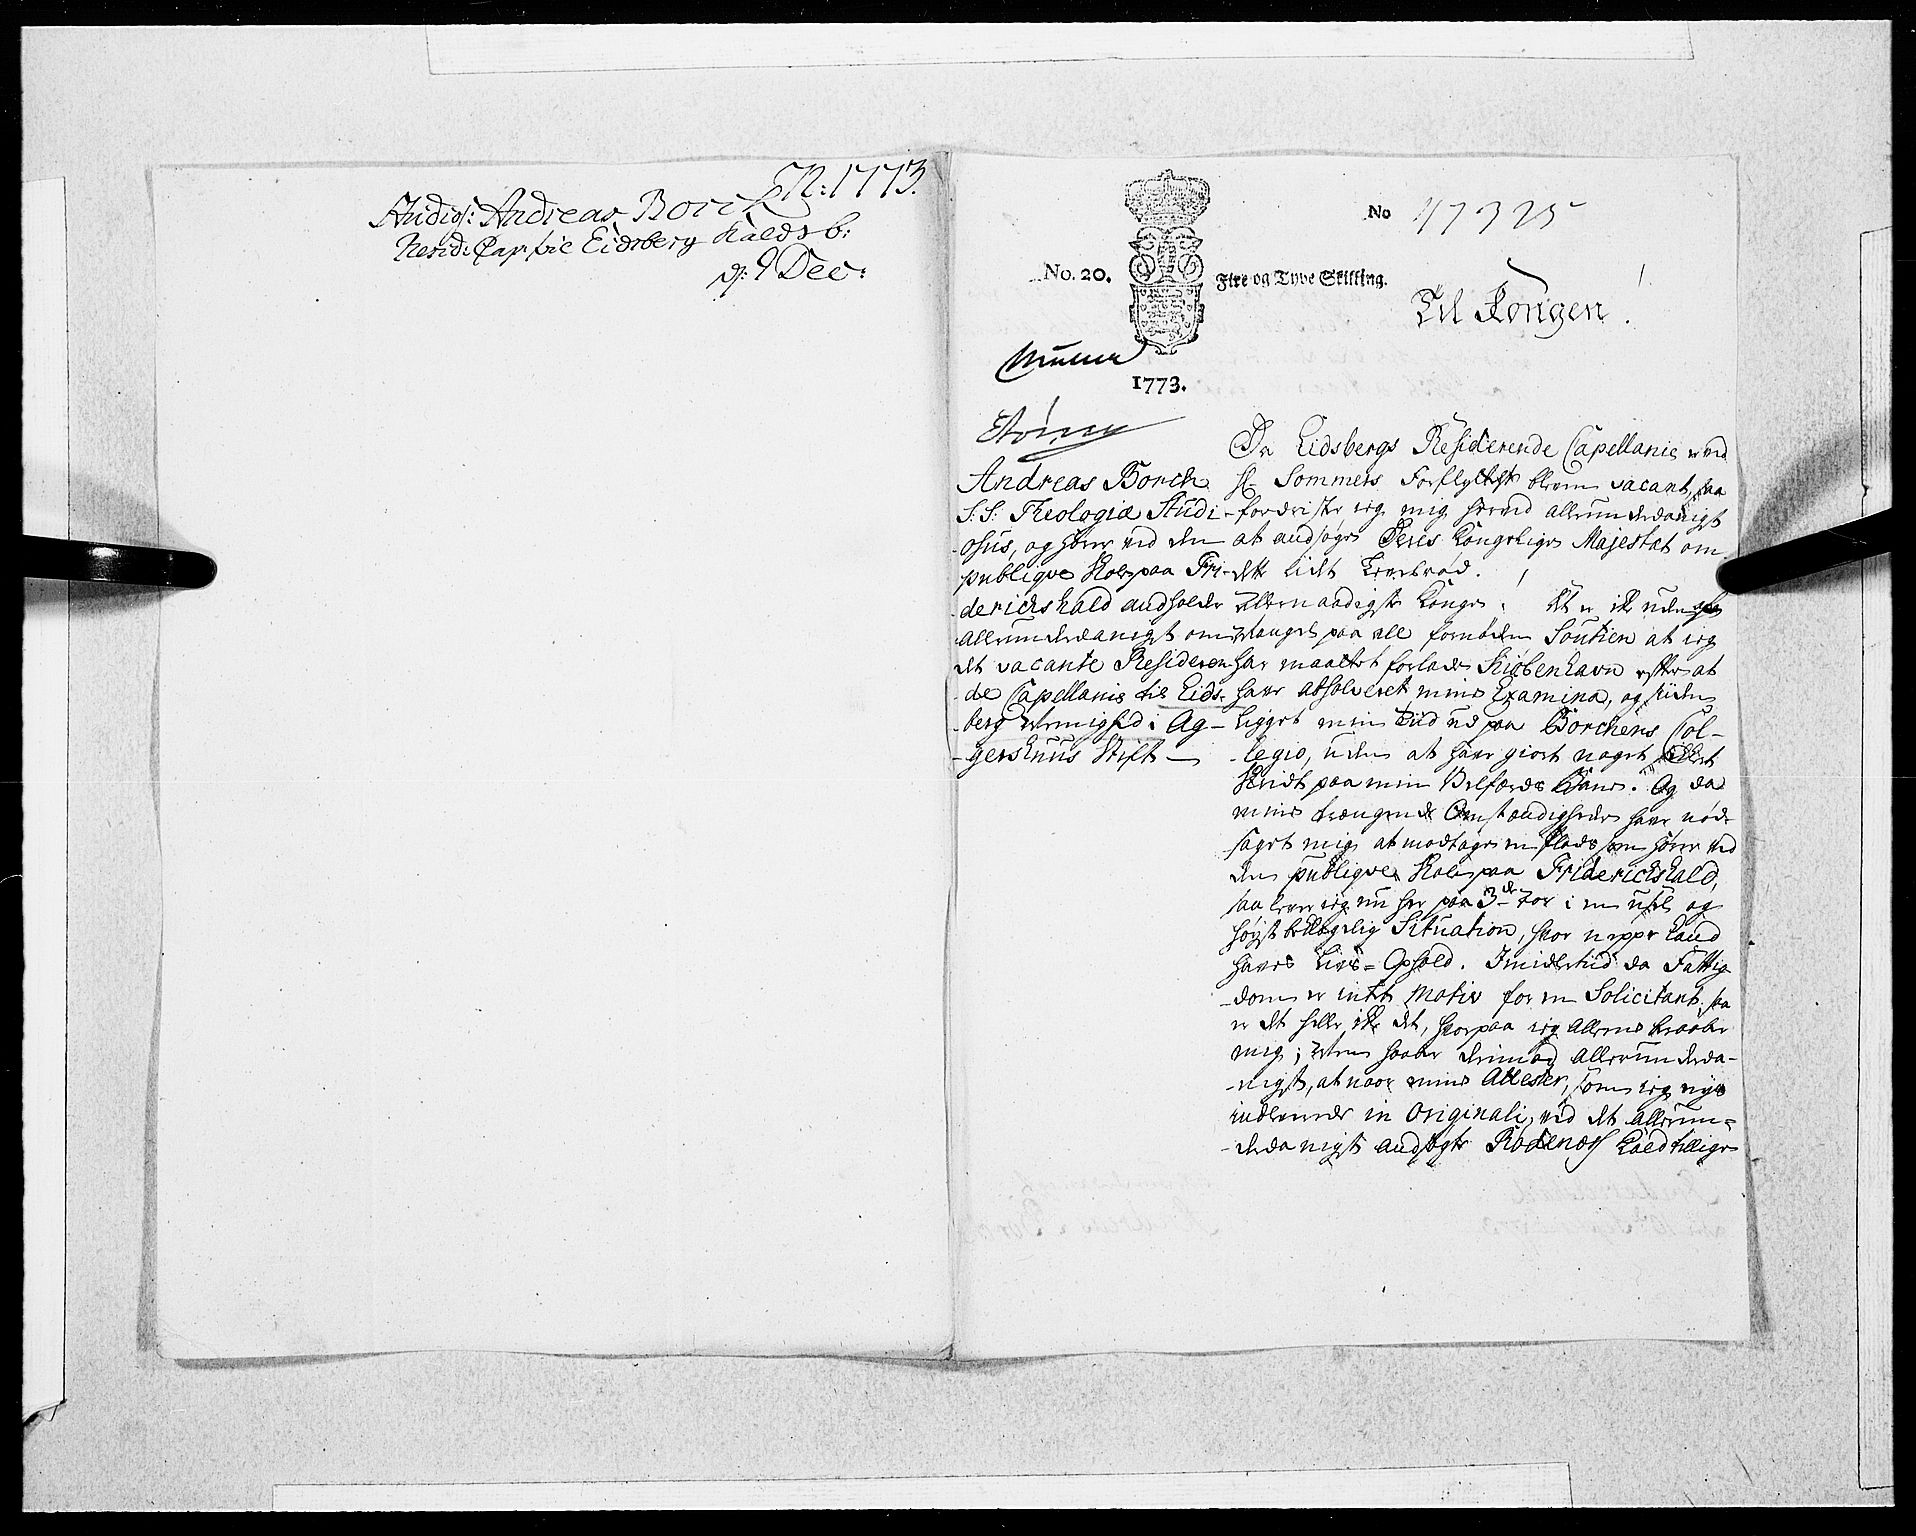 N: 1773.
Studios: Andreas Borch
Resid: Cap: til Eidsberg Kaldsb:
d: 9 Dec:
No 47325
No. 20. Fire og Tyve Skilling.
Til Kongen.
1773.
Andreas Borch
S: S: Theologiæ Studi-
osus, og Hører ved den
publiqve Skole paa Fri-
derichshald andholder
allerunderdanigst om
det vacante Resideren-
de Capellanie til Eids-
berg Menighed i Ag-
gershuus Stift
Da Eidsbergs Residerende Capellanie ved
Hr Sommers Forflyttelse bleven vacant, saa
fordrister ieg mig herved allerunderdanigst
at andsøge Deres Kongelige Majestæt om
dette lidet Levebrød.
Allernaadigste Konge! Det er ikke uden
Mangel paa all fornøden Soutien at ieg
har maattet forlade Kiøbenhavn efter at
have absolveret mine Examina, og siden
ligget min Tiid ud paa Borchens Col-
legio, uden at have giort noget
Skridt paa min Velfærds Bane. Og da
mine trængende Omstændigheder have nød-
saget mig at modtage en Plads som Hører ved
den publiqve Skole paa Friderichshald,
saa lever ieg nu her paa 3de Aar i en ussel og
høyst beklagelig Situation, hvor neppe kand
haves Livs-Ophold. Imidlertid da Fattig-
dom er intet Motiv for en Solicitant, saa
er det heller ikke det, hvorpaa ieg allene beraaber
mig; Men haaber derimod allerunderda-
nigst, at naar mine Attester, som ieg
indlevered in Originali, ved det allerun-
derdanigst andsøgte Rødenæss Kald tillige